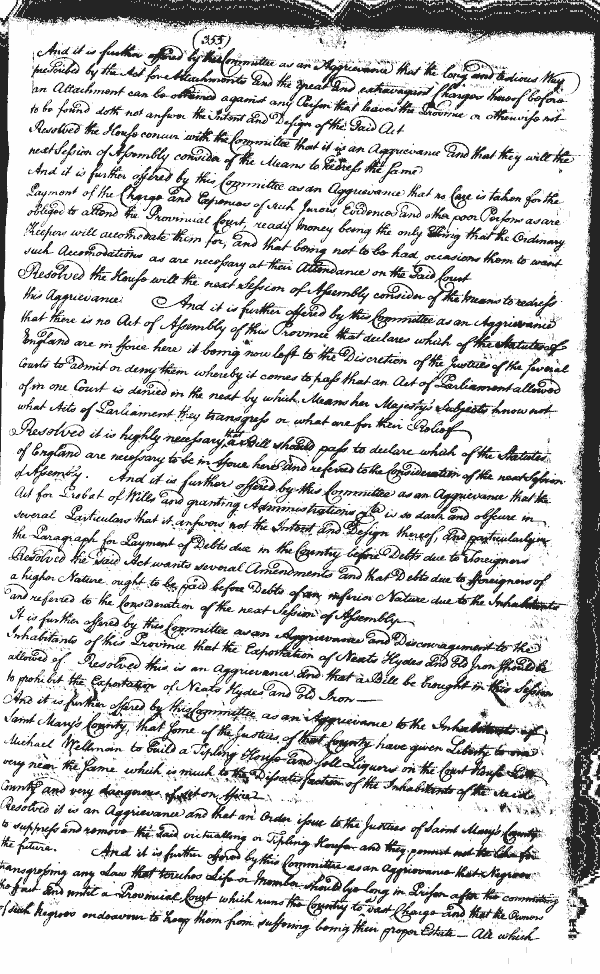 (355)
And it is further offered by this Committee as an Aggrievance that the long and tedious Way
prescribed by the Act for Attachments and the great and extravagant Charges thereof before
an Attachment can be obtained against any Person that leaves the Province or otherwise not
to be found doth not answer the Intent and Design of the said Act
Resolved the House concur with the Committee that it is an Aggrievance and that they will the
next Session of Assembly consider of the Means to redress the same
And it is further offered by this Committee as an Aggrievance that no Care is taken for the
Payment of the Charge and Expences of such Jurors Evidences and other poor Persons as are
obliged to attend the Provincial Court, ready money being the only thing that the Ordinary
Keepers will accomodate them for, and that being not to be had occasions them to want
such Accomodations as are necessary at their Attendance on the said Court
Resolved the House will the next Session of Assembly consider of the means to redress
this Aggrievance And it is further offered by this Committee as an Aggrievance
that there is no Act of Assembly of this Province that declares which of the Statutes of
England are in force here it being now left to the Discretion of the Justices of the several
Courts to admit or deny them whereby it comes to pass that an Act of Parliament allowed
of in one Court is denied in the next by which Means her Majestys Subjects know not
what Acts of Parliament they transgress or what are for their Relief
Resolved it is highly necessary that a Bill should pass to declare which of the Statutes
of England are necessary to be in force here and referred to the Consideration of the next Session
of Assembly. And it is further offered by this Committee as an Aggrievance that the
Act for Probat of Wills and granting Administrations &ca is so dark and obscure in
several Particulars that it answers not the Intent and Design thereof and particularly in
the Paragraph for Payment of Debts due in the Country before Debts due to Foreigners
Resolved the said Act wants several Amendments and that Debts due to Foreigners of
a higher Nature ought to be paid before Debts of an inferior Nature due to the Inhabitants
and referred to the Consideration of the next Session of Assembly
It is further offered by this Committee as an Aggrievance and Discouragement to the
Inhabitants of this Province that the Exportation of Neats Hydes and old Iron should be
allowed of Resolved this is an Aggrievance and that a Bill be brought in this Session
to prohibit the Exportation of Neats Hydes and old Iron —
And it is further offered by this Committee as an Aggrievance to the Inhabitants of
Saint Mary's County, that some of the Justices of that County have given Liberty to one
Michael to build a Tipling House and sell Liquors on the Court House
very near the same which is much to the Dissatisfaction of the Inhabitants of the said
County and very dangerous if set on fire
Resolved it is an Aggrievance and that an Order issue to the Justices of Saint Mary's County
to suppress and remove the said victualling or Tipling House and they permit not the like for
the future. And it is further offered by this Committee as an Aggrievance that Negroes
transgressing any Law that touches Life or Member should lye long in Prison after the committing
the fact and until a Provincial Court which runs the Country to vast Charge and that the Owners
of such Negroes endeavour to keep them from suffering being their proper Estate — All which